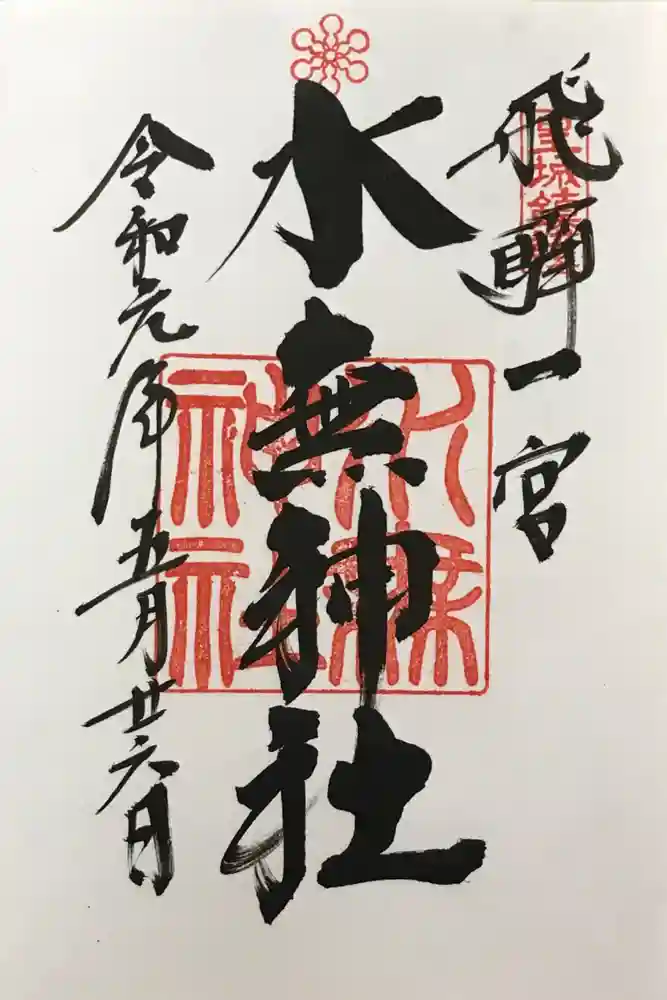 飛驒一宮
水無神社
令和元年五月廿六日
水無神社